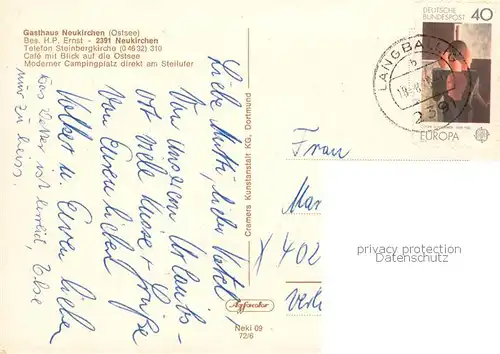 Gasthaus Neukirchen (Ostsee)
Bes. H.P. Ernst - 2391 Neukirchen
Telefon Steinbergkirche (0 46 32) 310
Café mit Blick auf die Ostsee
Moderner Campingplatz direkt am Steilufer
Liebe Mutti, lieber Vater!
Von unserem Urlaubs-
ort viele Küsse + Grüße
von Euren lieben
Volker u. Eurer lieben
Das Wetter ist herrlich, Else
nur zu heiss.
Cramers Kunstanstalt KG, Dortmund
Agfacolor
Neki 09
72/6
DEUTSCHE
BUNDESPOST
40
EUROPA
LANGBALLIG
239
Frau
Mar
X 402
privacy protection
Datenschutz